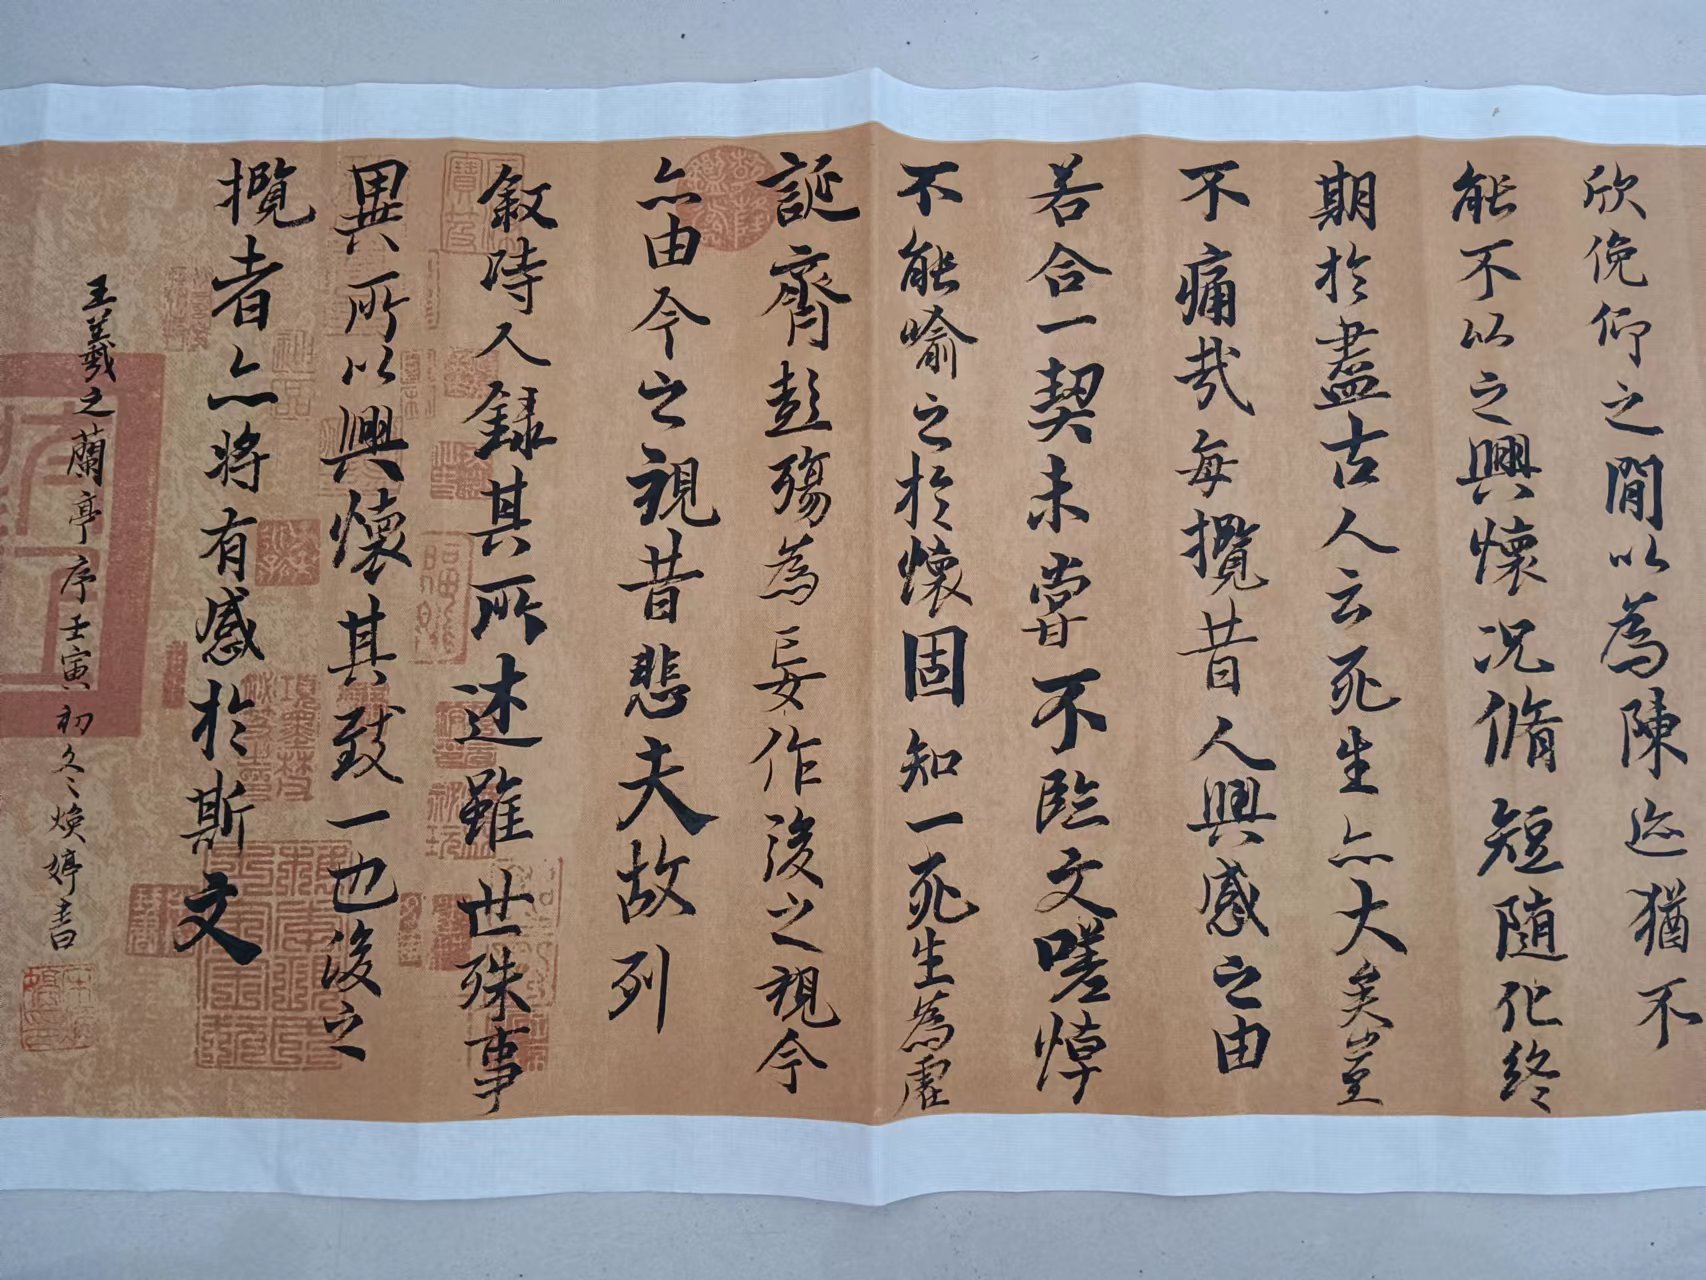 欣俛仰之間以為陳迹猶不
能不以之興懷況脩短隨化終
期於盡古人云死生亦大矣豈
不痛哉每攬昔人興感之由
若合一契未嘗不臨文嗟悼
不能喻之於懷固知一死生為虛
誕齊彭殤為妄作後之視今
亦由今之視昔悲夫故列
敘時人錄其所述雖世殊事
異所以興懷其致一也後之
攬者亦將有感於斯文
王羲之蘭亭序壬寅初冬煥婷書